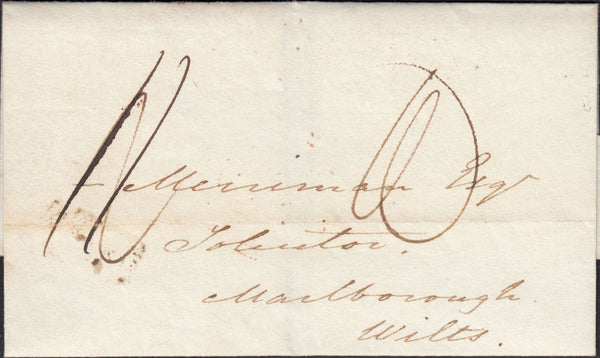 — Merriman Esqr
Solicitor.
Marlborough.
Wilts.